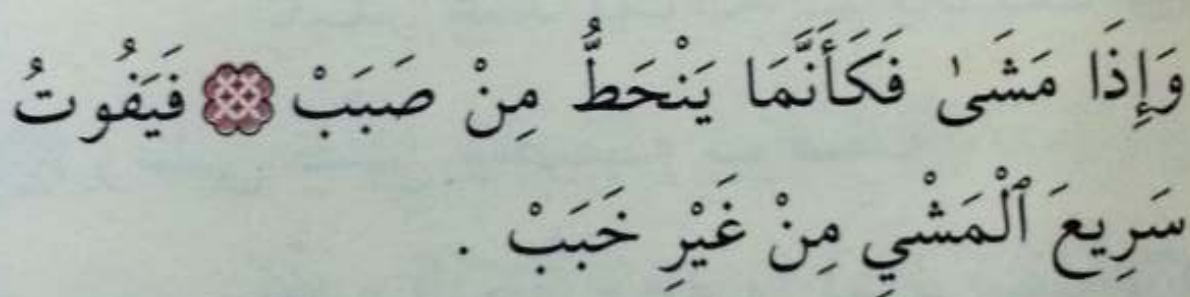 وَإِذَا مَشَىٰ فَكَأَنَّمَا يَنْحَطُّ مِنْ صَبَبْ فَيَفُوتُ
سَرِيعَ ٱلْمَشْيِ مِنْ غَيْرِ خَبَبْ .